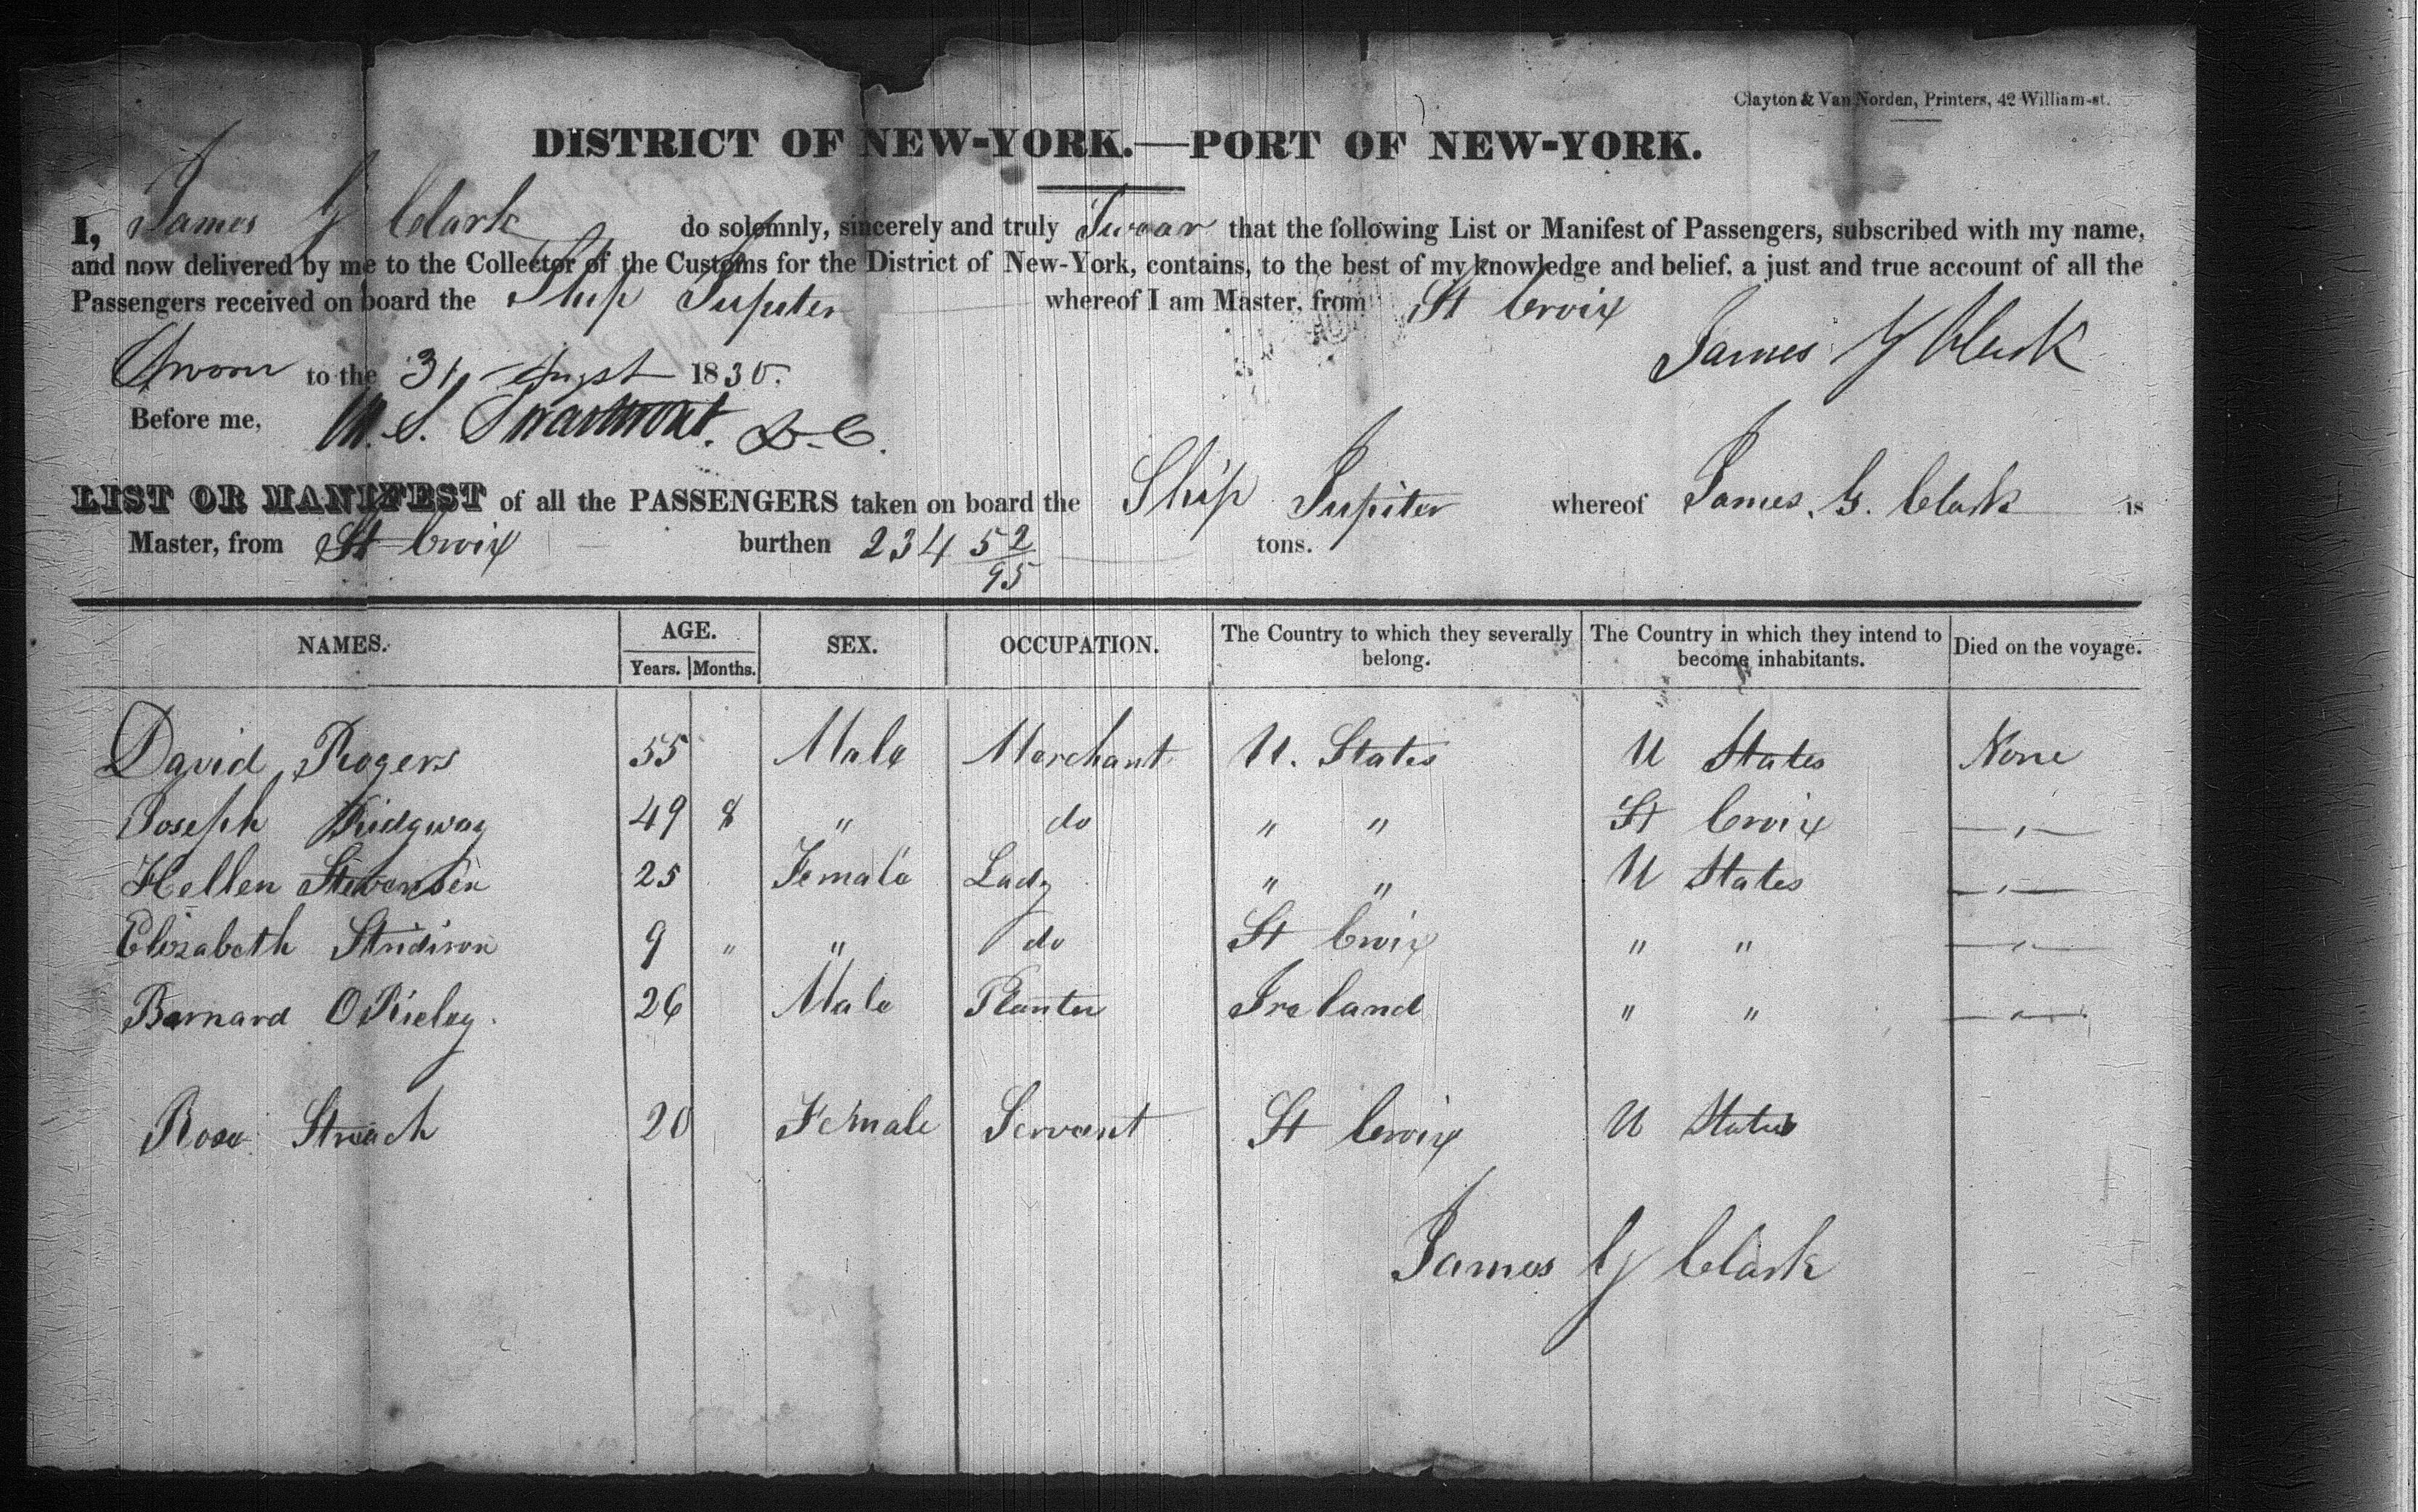 Clayton & Van Norden, Printers, 42 William-st.
DISTRICT OF NEW-YORK.—PORT OF NEW-YORK.
I, James G Clark do solemnly, sincerely and truly Swear that the following List or Manifest of Passengers, subscribed with my name,
and now delivered by me to the Collector of the Customs for the District of New-York, contains, to the best of my knowledge and belief, a just and true account of all the
Passengers received on board the Ship Jupiter whereof I am Master, from St Croix
James G Clark
Sworn to the 31 August 1830.
Before me, M. S. D.C.
LIST OR MANIFEST of all the PASSENGERS taken on board the Ship Jupiter whereof James. G. Clark is
Master, from St Croix burthen 234 52/95 tons.
NAMES. AGE. Years. Months. SEX. OCCUPATION. The Country to which they severally belong. The Country in which they intend to become inhabitants. Died on the voyage.
David Rogers 55 Male Merchant U. States U States None
Joseph Ridgway 49 8 " do " " St Croix — " —
Hellen Stevensen 25 Female Lady " " U States — " —
Elizabeth 9 " " do St Croix " " — " —
Barnard ORieley. 26 Male Planter Ireland " " — " —
Rosa 20 Female Servant St Croix U States
James G Clark